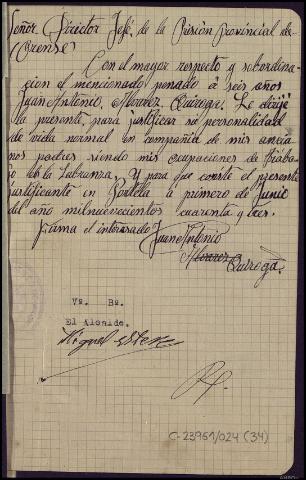 Señor Director Jefe, de la Prisión Provincial de
Orense
Con el mayor respecto y subordina-
cion el mencionado penado á seis años
Juan Antonio, Alvarez, Quiroga. Le dirije
la presente para justificar su personalidad
de vida normal en compañia de mis ancia
nos padres siendo mis ocupaciones de traba
jo de la Labranza. Y para que conste el presente
justificante en Portela á primero de Junio
del año milnuevecientos cuarenta y tres.
Firma el interesado Juan Antonio
Alvarez
Quiroga
Vº. Bº.
El Alcalde.
Miguel
C-23961/024 (34)